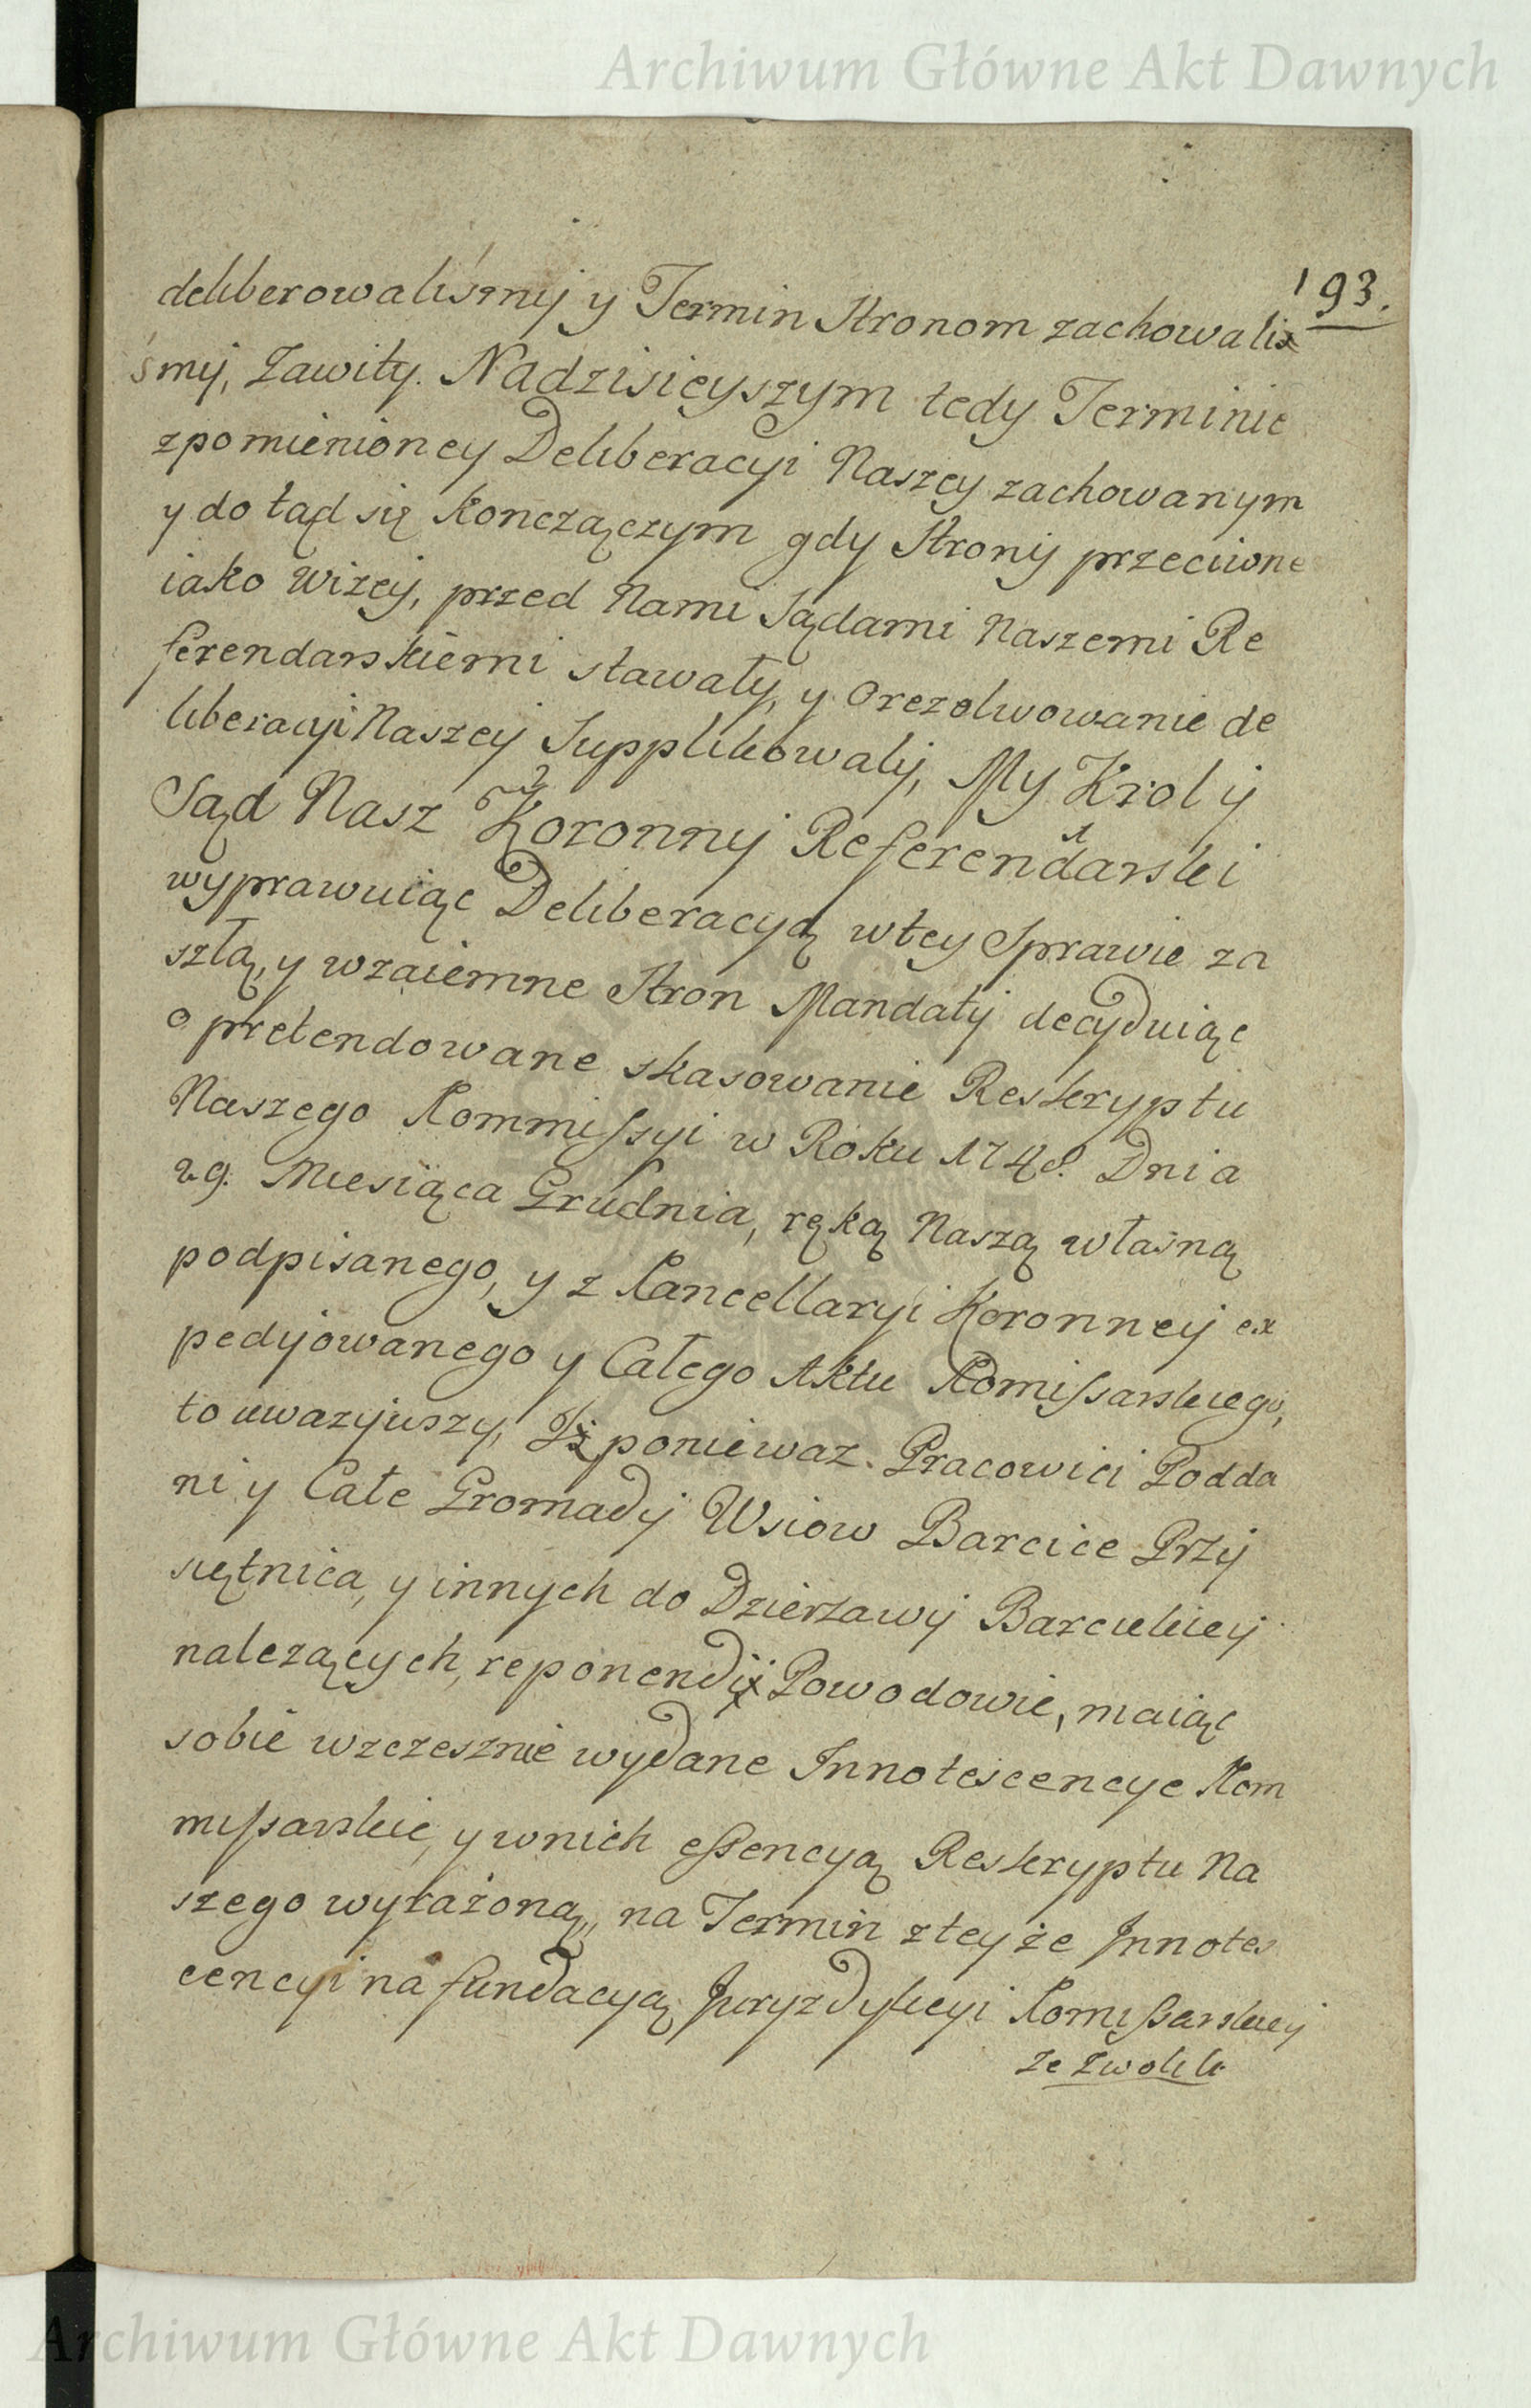 Archiwum Główne Akt Dawnych
193.
deliberowaliśmy y Termin Stronom zachowalis
śmy, Zawity. Nadzisieyszym tedy Terminie
zpomienioney Deliberacyi Naszey zachowanym
y do tąd się konczączym gdy Strony przeciwne
iako wizey, przed Nami Sądami Naszemi Re
ferendarskiemi stawały, y orezolwowanie de
liberacyi Naszey Supplikowaly, My Krol y
Sąd Nasz Koronny Referendarski
wyprawuiąc Deliberacyą wtey Sprawie za
szłą, y wzaiemne Stron Mandaty decyduiąc
o pretendowane skasowanie Reskryptu
Naszego Kommissyi w Roku 1748. Dnia
29. Miesiąca Grudnia, ręką Naszą własną
podpisanego, y z Kancellaryi Koronney ex
pedyjowanego y Całego Aktu Komissarskiego,
to uwazyuszy, Iż poniewaz Pracowici Podda
ni y Cale Gromady Wsiow Barcice Przy
siętnica, y innych do Dzierzawy Barcickiey
nalezących, reponendi Powodowie, maiąc
sobie wzczesznie wydane Innotescencye Kom
missarskie, y wnich essencyą Reskryptu Na
szego wyrażoną, na Termin zteyże Innotes
cencyi na fundacyą Juryzdykcyi Komissarskiey
ze zwolili
Archiwum Główne Akt Dawnych